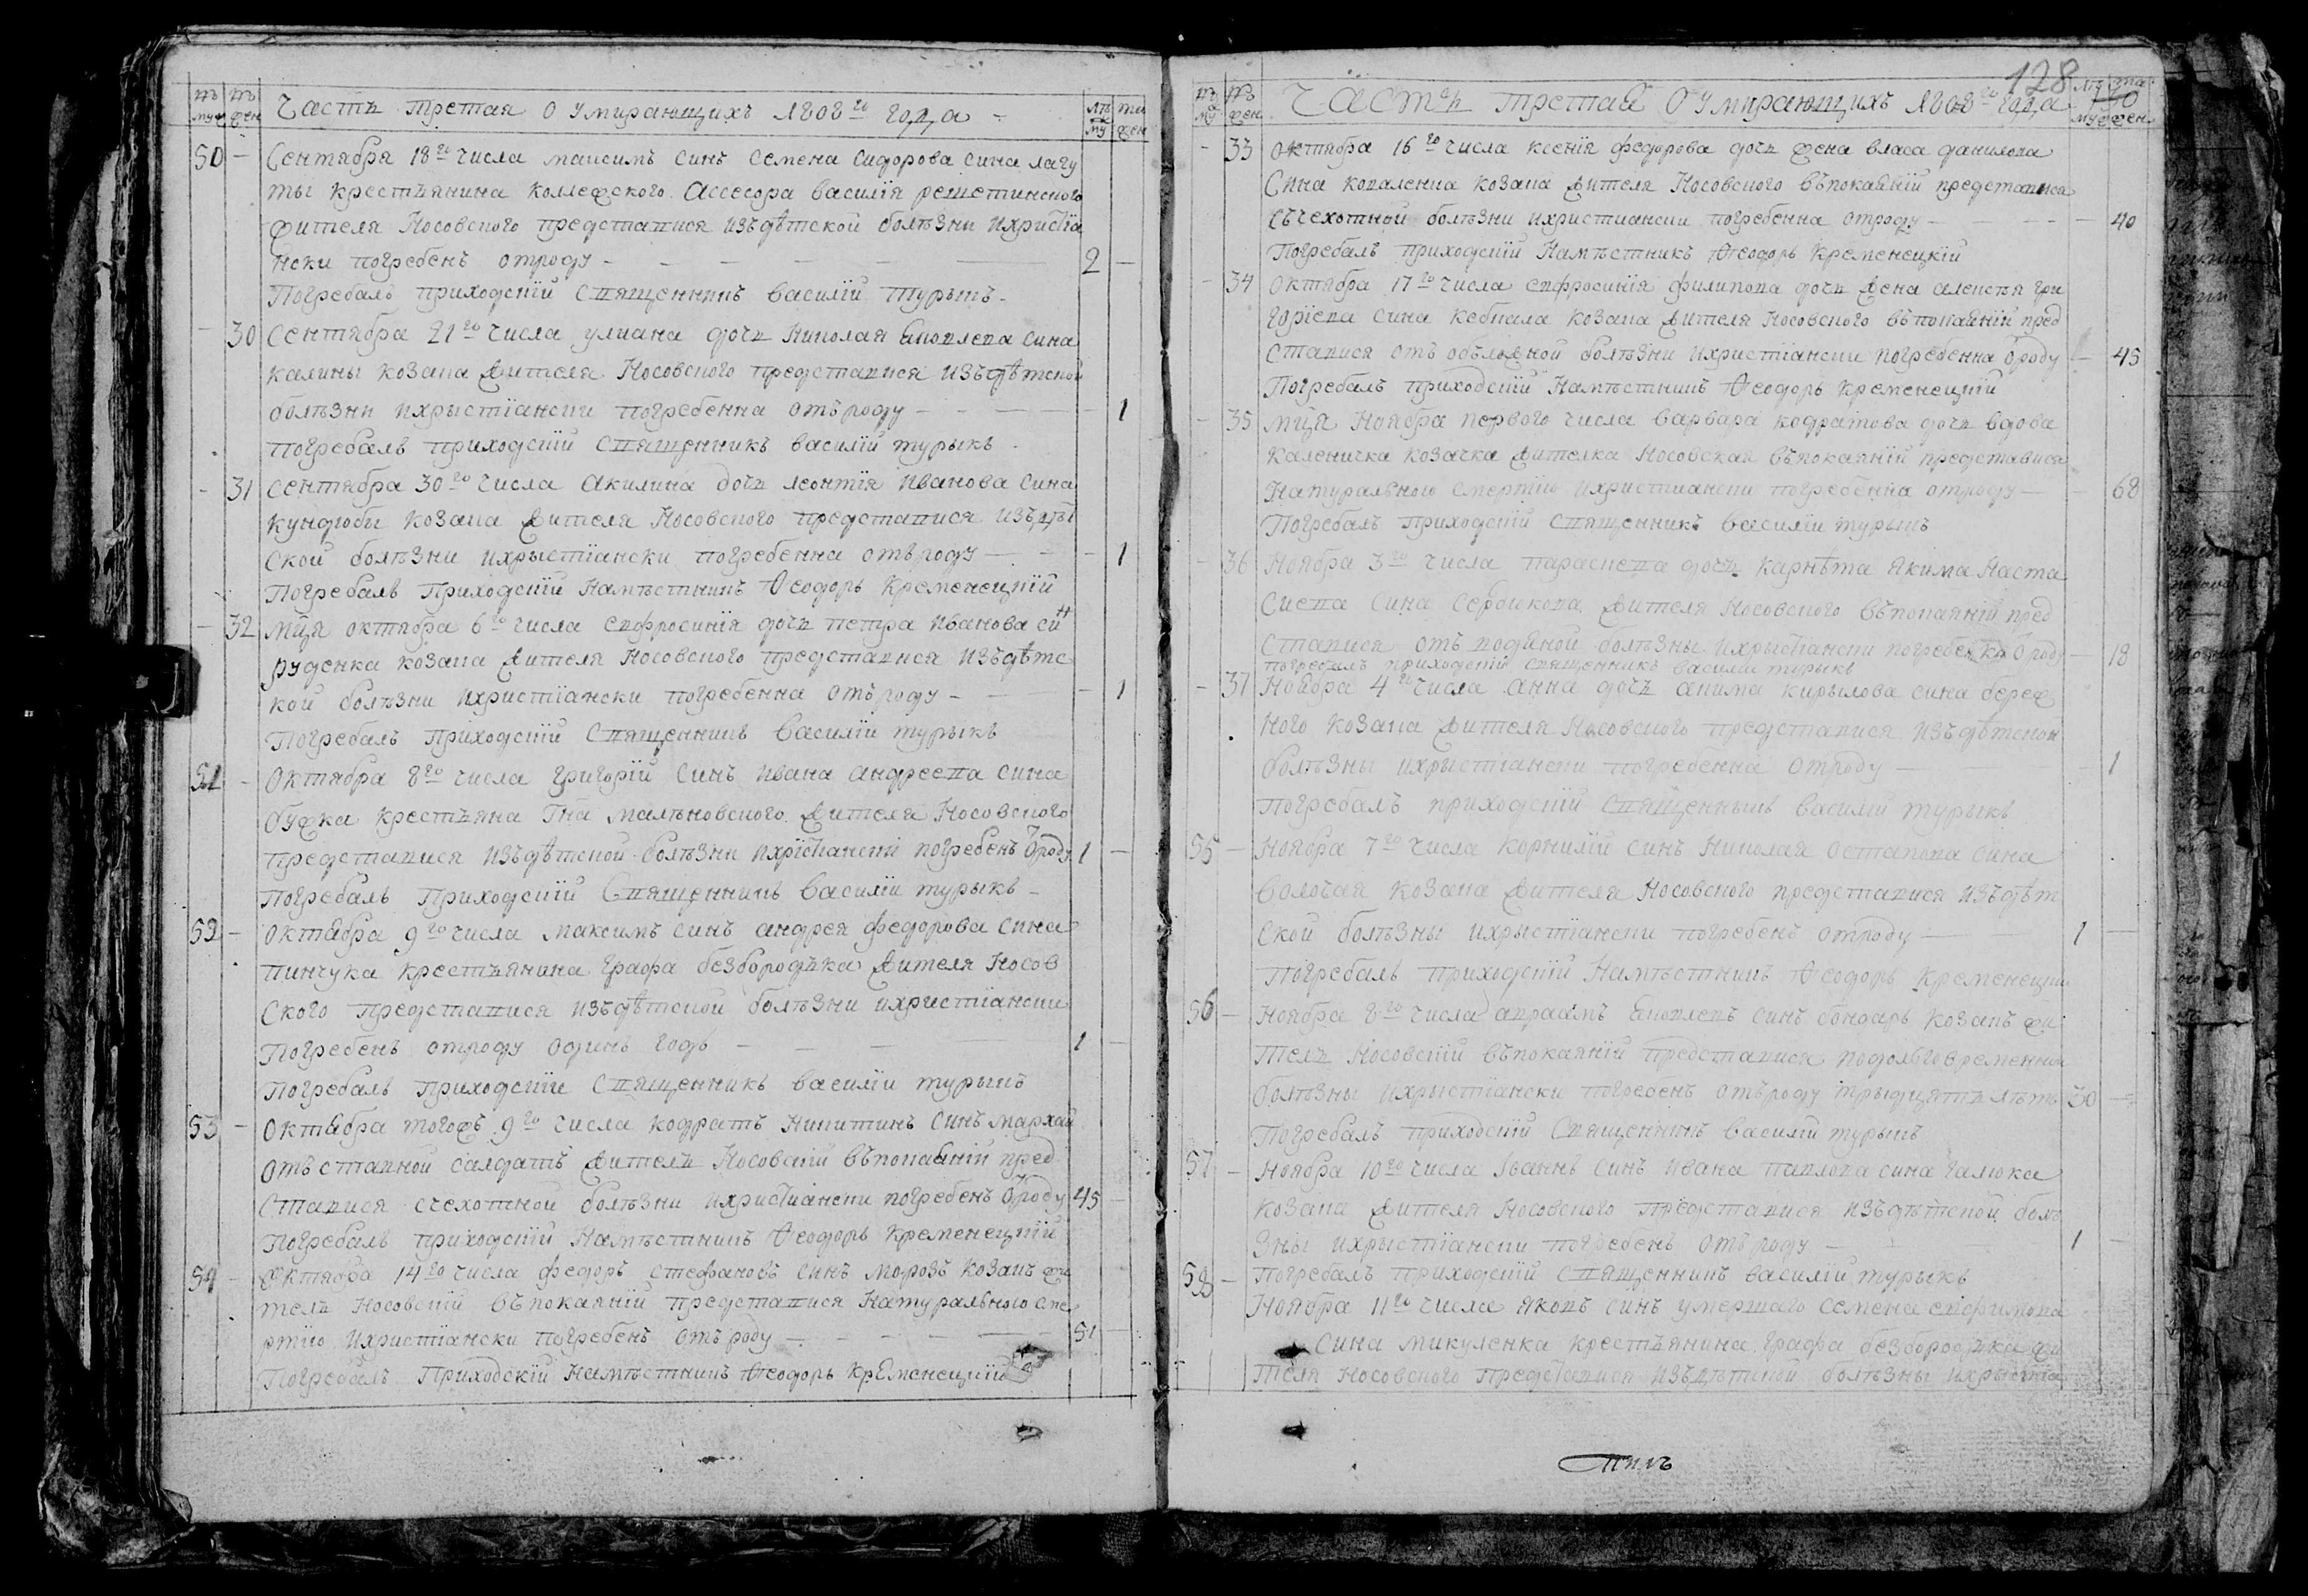 Часть третая о умирающихъ 1808го года
50 – Сентября 18го числа максимъ синъ семена сидорова сина лагу
ты крестьянина коллежского Ассесора василія решетинского
жителя Носовского представися изъдѣтской болѣзни ихристіа
нски погребенъ отроду – 2 –
Погребалъ приходскій Священникъ василій турыкъ
– 30 Сентября 21го числа улиана дочь Николая Яковлева сина
калины козака жителя Носовского представися изъдѣтской
болѣзни ихрыстіански погребенна отъроду – – 1
погребалъ приходскій Священникъ василій турыкъ
– 31 Сентября 30го числа Акилина дочь леонтія иванова сина
кундюбы козака жителя Носовского представися изъдѣт
ской болѣзни ихрыстіански погребенна отъроду – – 1
Погребалъ Приходскій Намѣстникъ Ѳеодоръ Кременецкій
– 32 Мця октября 6го числа евфросинія дочь петра иванова син
руденка козака жителя Носовского представися изъдѣтс
кой болѣзни ихристіански погребенна отъроду – – 1
Погребалъ приходскій Священникъ василій турыкъ
51 – Октября 8го числа григорій синъ ивана андреева сина
бужка крестьяна Гна мальновского жителя Носовского
представися изъдѣтской болѣзни ихристіанскі погребенъ ѿроду 1 –
погребалъ Приходскій Священникъ василій турыкъ
52 – Октября 9го числа максимъ синъ андрея федорова сина
пинчука крестьянина графа безбородька жителя Носов
ского представися изъдѣтской болѣзни ихристіански
Погребенъ отроду одинъ годъ – 1 –
Погребалъ Приходскій Священникъ василій турыкъ
53 – Октября тогожъ 9го числа кодратъ Никитинъ синъ мархай
отъставной салдатъ жителъ Носовскій въпокаяній пред
ставися счехотной болѣзни ихристіански погребенъ ѿроду 45 –
Погребалъ приходскій Намѣстникъ Ѳеодоръ Кременецкій
54 – Октября 14го числа федоръ стефановъ синъ морозъ козакъ жи
тель Носовскій въпокаяній представися Натуральною сме
ртію ихристіански погребенъ отъроду – 51 –
Погребалъ Приходскій Намѣстникъ Ѳеодоръ Кременецкій
128
Часть третая о умирающихъ 1808го года
– 33 октября 16го числа ксенія федорова дочь жена власа данилова
Сина коваленка козака жителя Носовского въпокаяній представися
съчехотной болѣзни ихристиански погребенна отроду – – 40
Погребалъ приходскій Намѣстникъ Ѳеодоръ Кременецкій
– 34 Октября 17го числа евфросинія филипова дочь жена алексѣя гри
горіева сина кебкала козака жителя Носовского въпокаяній пред
ставися отъ обѣложной болѣзни ихристіански погребенна ѿроду – 45
Погребалъ приходскій Намѣстникъ Ѳеодоръ Кременецкій
– 35 Мця Ноября первого числа варвара кодратова дочь вдова
каленичка козачка жителка Носовская въпокаяній представися
Натуральною смертію ихристиански погребенна отроду – – 68
Погребалъ приходскій Священникъ василій турыкъ
– 36 Ноября 3го числа параскева дочь карнѣта якима Наста
сиева сина сердюкова жителя Носовского въпокаяній пред
ставися отъ водяной болѣзны ихристіански погребенна ѿроду – 18
погребалъ приходскій священникъ василій турыкъ
– 37 Ноября 4го числа анна дочь акима кирылова сина береж
ного козака жителя Носовского представися изъдѣтской
болѣзны ихрыстіански погребенна отроду – – 1
погребалъ приходскій Священникъ василій турыкъ
55 – Ноября 7го числа корнилій синъ Николая остапова сина
волочая козака жителя Носовского представися изъдѣт
ской болѣзны ихрыстіански погребенъ отроду – 1 –
Погребалъ приходскій Намѣстникъ Ѳеодоръ Кременецкій
56 – Ноября 8го числа авраамъ Яковлевъ синъ бондарь козакъ жи
тель Носовскій въпокаяній представися подолъговременной
болѣзны ихрыстіански погребенъ отъроду трыдцять лѣтъ 30 –
Погребалъ приходскій Священникъ василій турыкъ
57 – Ноября 10го числа Іоаннъ синъ ивана павлова сина галюка
козака жителя Носовского представися изъдѣтской болѣ
зны ихрыстіански погребенъ отъроду – 1 –
Погребалъ приходскій Священникъ василій турыкъ
58 – Ноября 11го числа яковъ синъ умершаго семена евфимова
Сина микуленка крестьянина графа безбородька жи
теля Носовского представися изъдѣтской болѣзны ихрыстіа